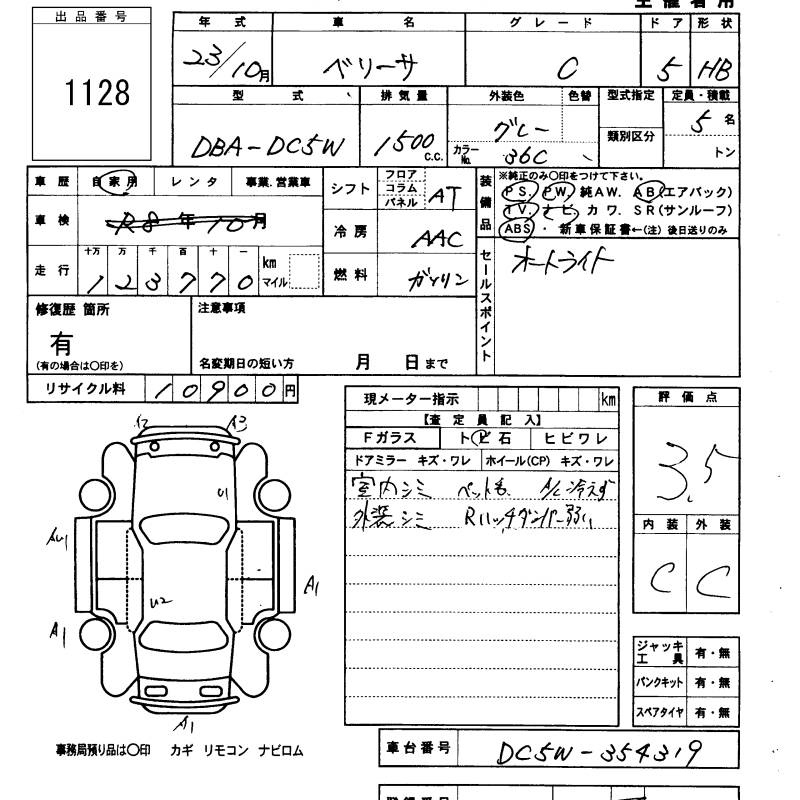 出品番号
1128
年式 車名 グレード ドア 形状
23/10月 ベリーサ C 5 HB
型式 排気量 外装色 色替 型式指定 定員・積載
DBA-DC5W 1500 c.c. グレー カラーNo. 36C 類別区分 5名 トン
車歴 自家用 レンタ 事業.営業車
車検 R8年10月
走行 十万 万 千 百 十 一 km マイル
1 2 3 7 7 0
シフト フロア コラム パネル AT
冷房 AAC
燃料 ガソリン
装備品
※純正のみ○印をつけて下さい。
PS. PW. 純AW. AB(エアバック)
TV. ナビ カワ. SR(サンルーフ)
ABS ・ 新車保証書←(注)後日送りのみ
セールスポイント
オートライト
修復歴 箇所
有
(有の場合は○印を)
注意事項
名変期日の短い方 月 日まで
リサイクル料 10900円
現メーター指示 km
【査定員記入】
Fガラス トビ石 ヒビワレ
ドアミラー キズ・ワレ ホイール(CP) キズ・ワレ
室内シミ ペット毛 A/C冷えず
外装シミ Rハッチダンパー弱い
評価点
3.5
内装 外装
C C
A2 A3
U1
AU1
U2
A1
A1
A1
ジャッキ工具 有・無
パンクキット 有・無
スペアタイヤ 有・無
事務局預り品は○印 カギ リモコン ナビロム
車台番号 DC5W-354319